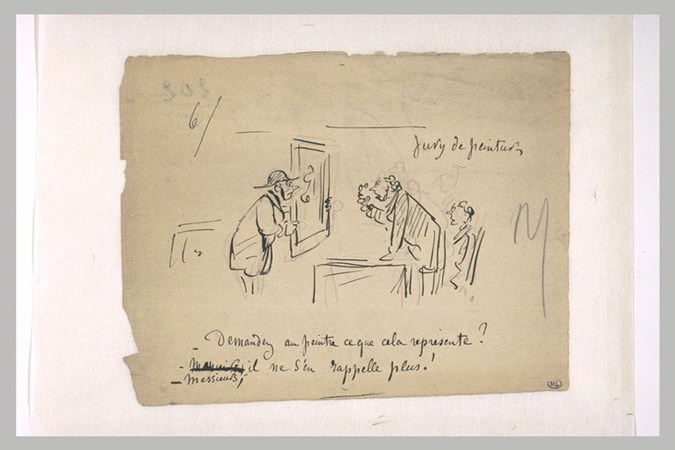 202
6/
Jury de peinture
M
_ Demandez au peintre ce que cela représente ?
- il ne s'en rappelle plus !
_ Messieurs,
ML